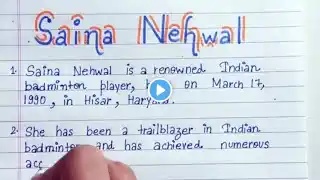 Saina Nehwal
1. Saina Nehwal is a renowned Indian
badminton player, on March 17,
1990, in Hisar,
2. She has been a trailblazer in Indian
badminton and has achieved numerous